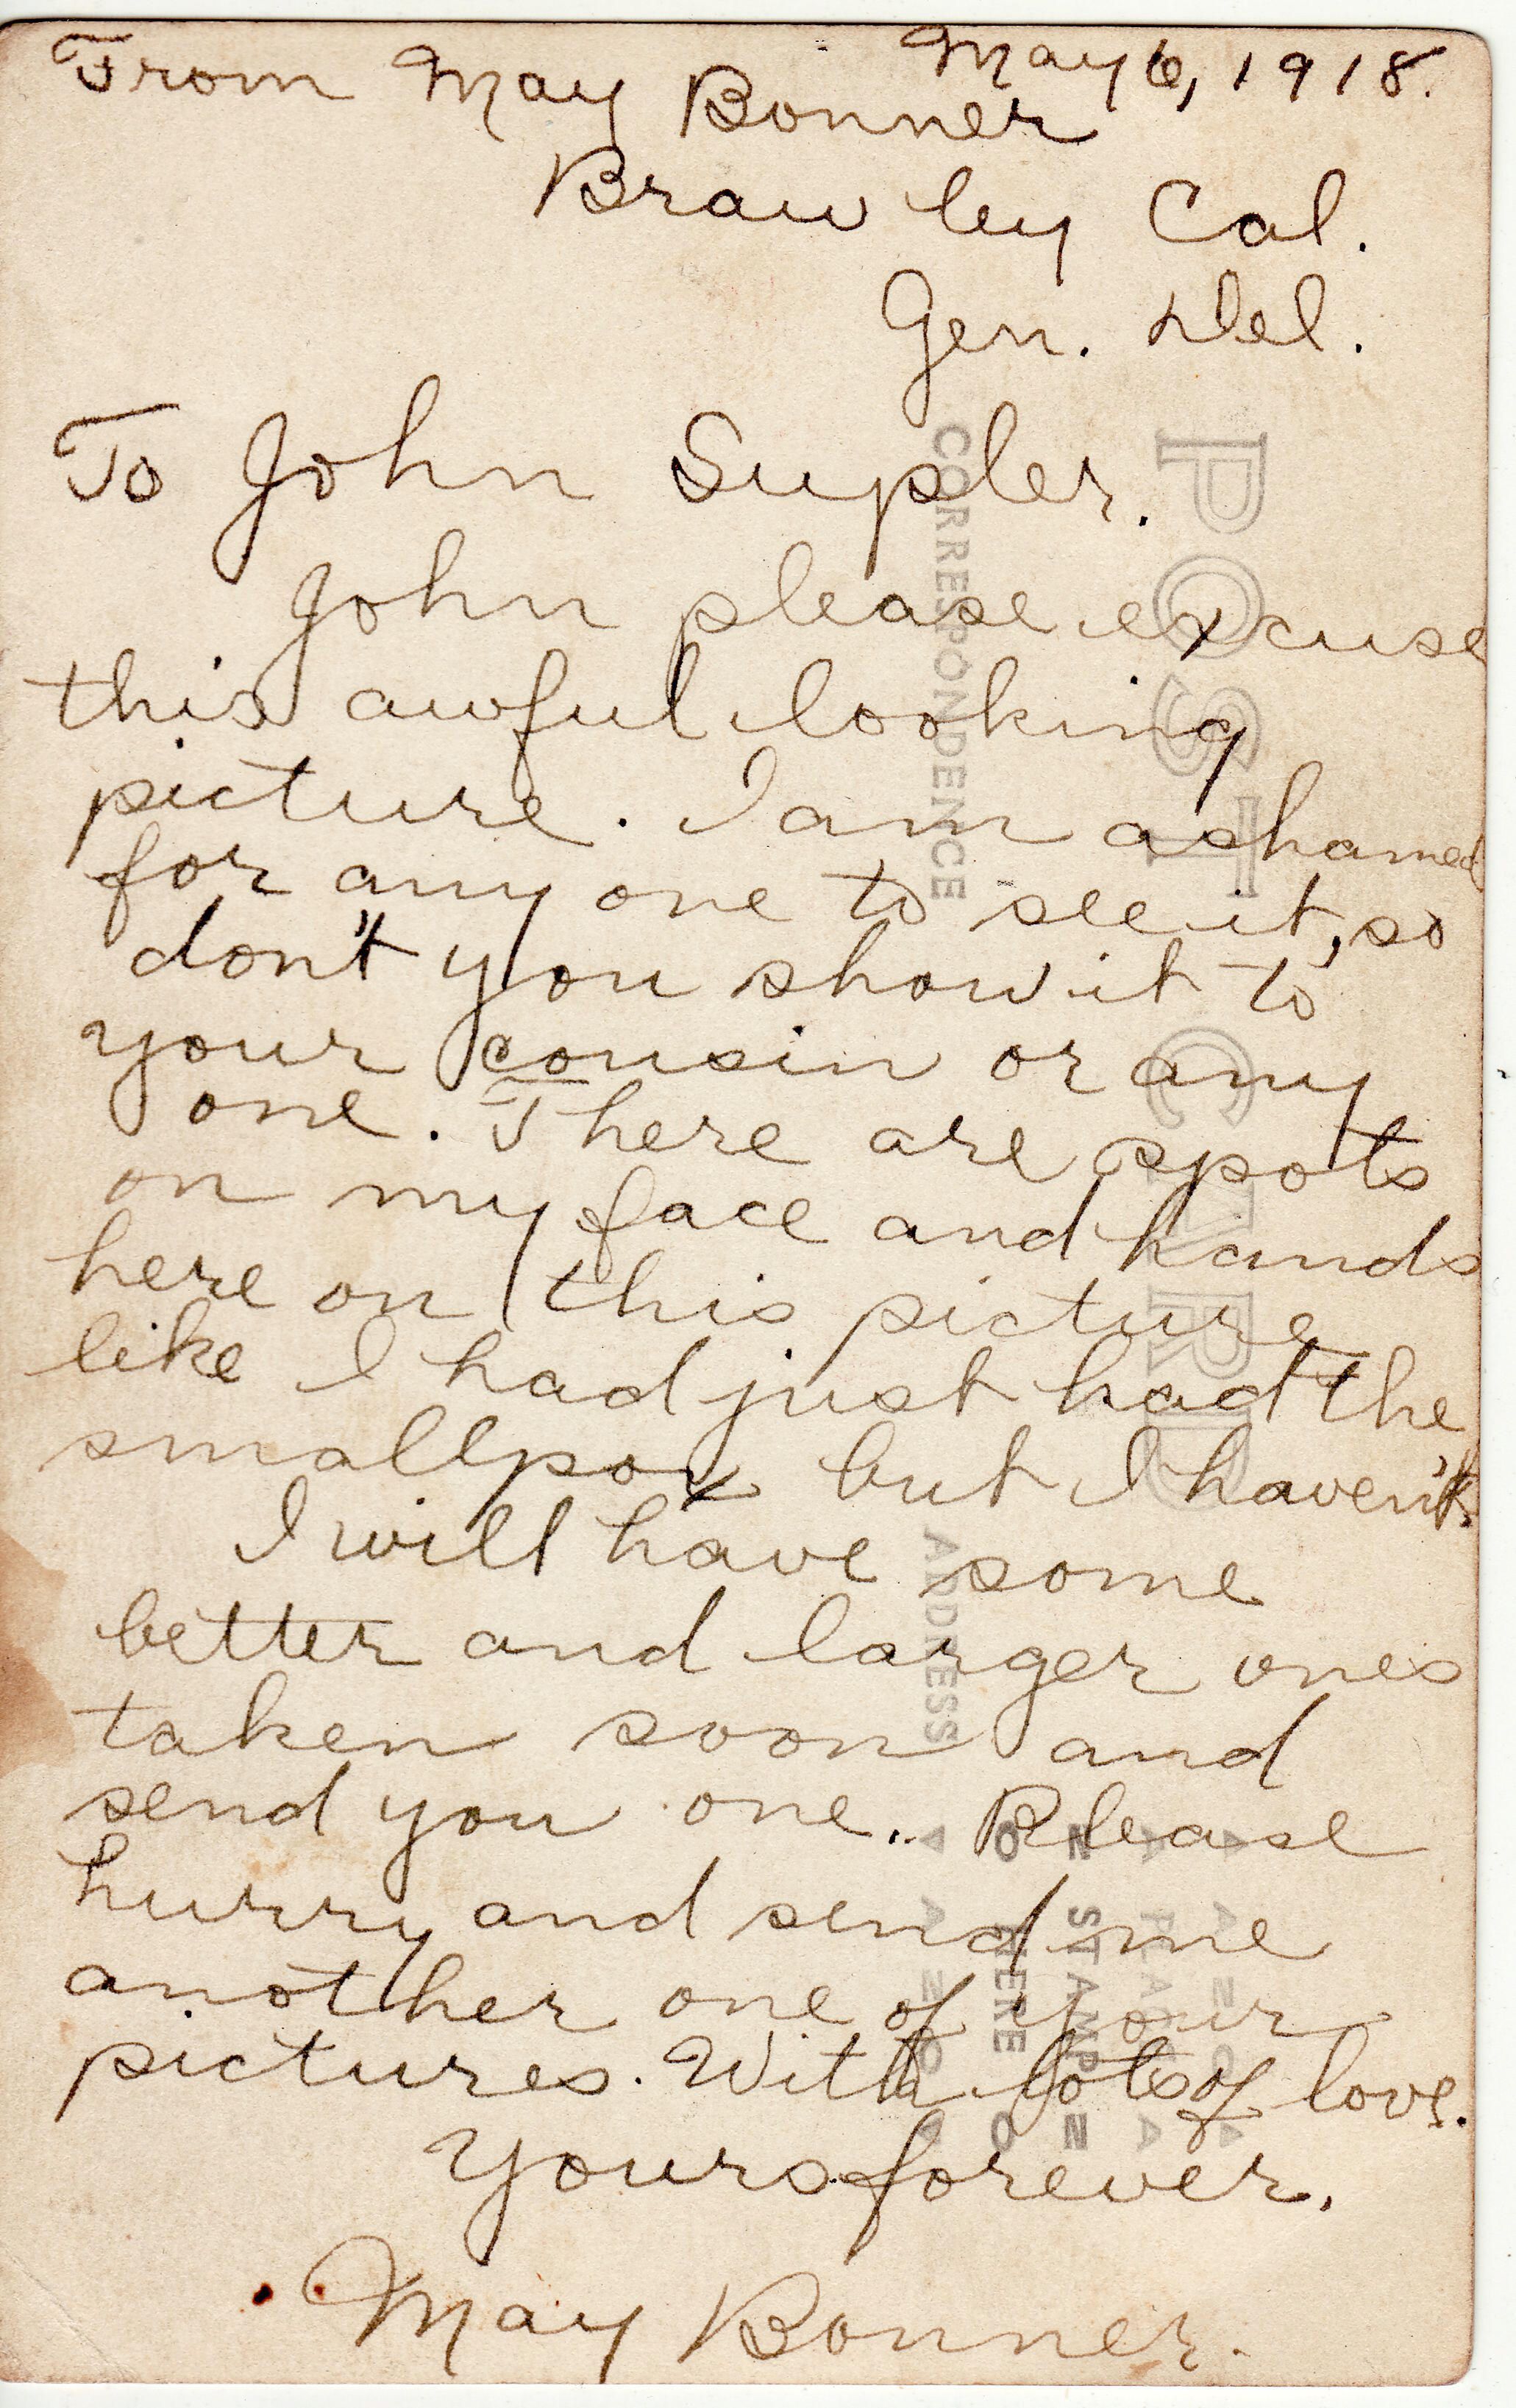 May 6, 1918.
From May Bonner
Brawley Cal.
Gen. Del.
To John Supler.
John please excuse
this awful looking
picture. I am ashamed
for any one to see it, so
don't you show it to
your cousin or any
one. There are spots
on my face and hands
here on this picture
like I had just had the
smallpox but I haven't.
I will have some
better and larger ones
taken soon and
send you one. Please
hurry and send me
another one of your
pictures. With lots of love.
Yours forever.
May Bonner.
POST CARD
CORRESPONDENCE
ADDRESS
AZO
PLACE
STAMP
HERE
AZO